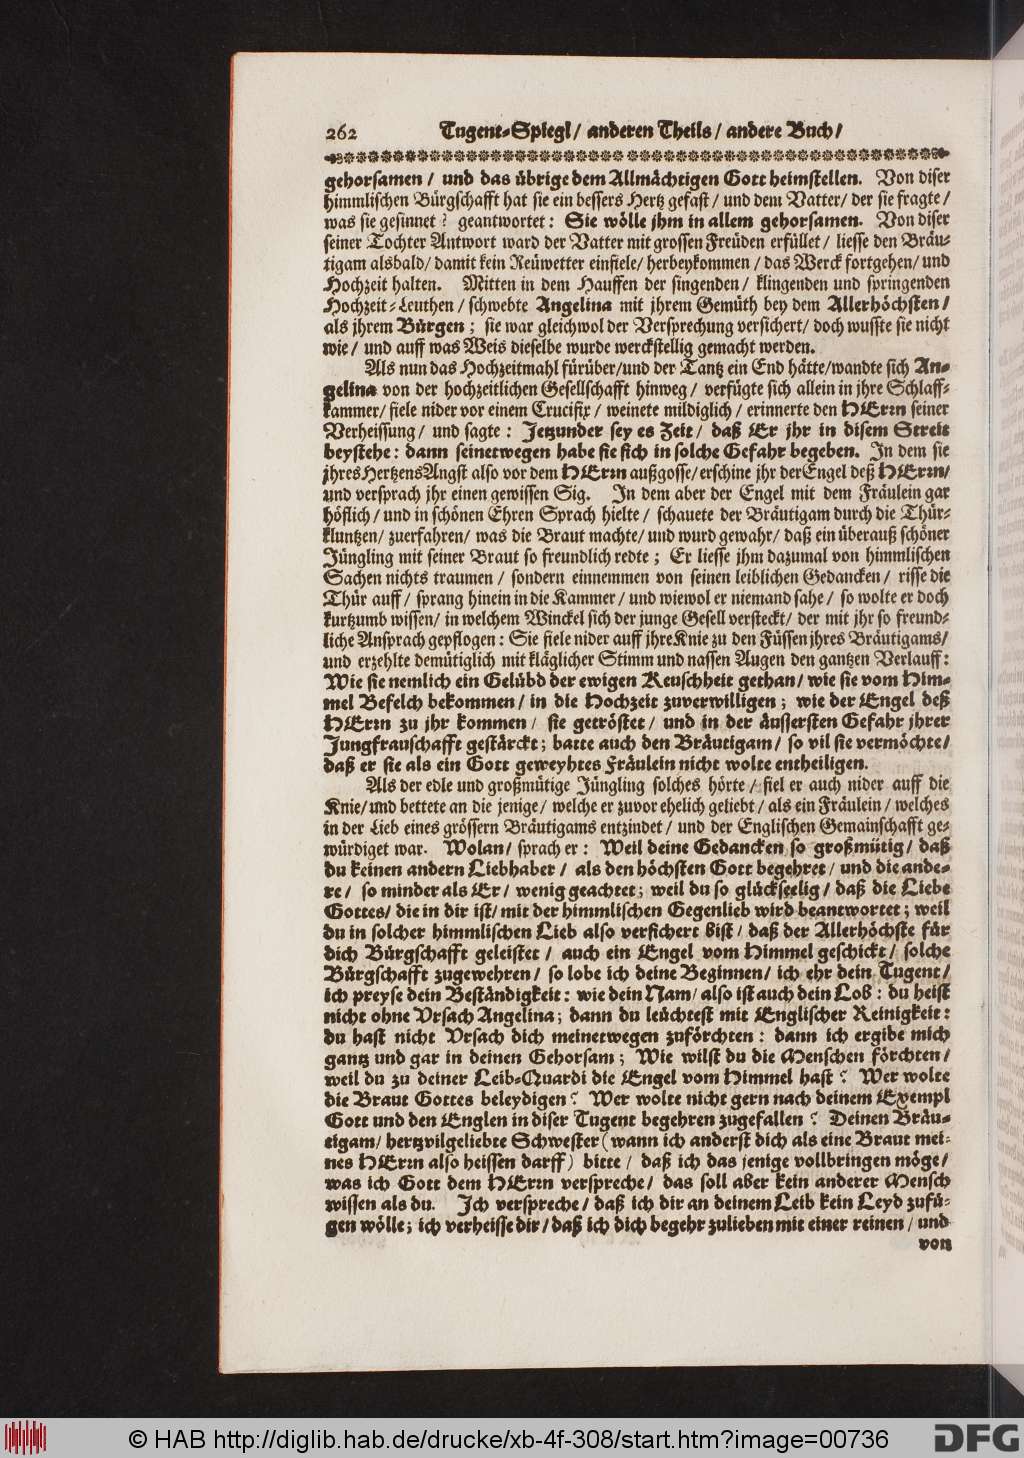 262 Tugent-Spiegl/ anderen Theils/ andere Buch/
gehorsamen/ und das übrige dem Allmächtigen Gott heimstellen. Von diser
himmlischen Bürgschafft hat sie ein bessers Hertz gefast/ und dem Vatter/ der sie fragte/
was sie gesinnet? geantwortet: Sie wölle jhm in allem gehorsamen. Von diser
seiner Tochter Antwort ward der Vatter mit grossen Freüden erfüllet/ liesse den Bräu-
tigam alsbald/ damit kein Reüwetter einfiele/ herbeykommen/ das Werck fortgehen/ und
Hochzeit halten. Mitten in dem Hauffen der singenden/ klingenden und springenden
Hochzeit-Leuthen/ schwebte Angelina mit jhrem Gemüth bey dem Allerhöchsten/
als jhrem Bürgen; sie war gleichwol der Versprechung versichert/ doch wusste sie nicht
wie/ und auff was Weis dieselbe wurde werckstellig gemacht werden.
Als nun das Hochzeitmahl fürüber/ und der Tantz ein End hätte/ wandte sich An-
gelina von der hochzeitlichen Gesellschafft hinweg/ verfügte sich allein in jhre Schlaff-
kammer/ fiele nider vor einem Crucifix/ weinete mildiglich/ erinnerte den HErrn seiner
Verheissung/ und sagte: Jetzunder sey es Zeit/ daß Er jhr in disem Streit
beystehe: dann seinetwegen habe sie sich in solche Gefahr begeben. In dem sie
jhres Hertzens Angst also vor dem HErrn außgosse/ erschine jhr der Engel deß HErrn/
und versprach jhr einen gewissen Sig. In dem aber der Engel mit dem Fräulein gar
höflich/ und in schönen Ehren Sprach hielte/ schauete der Bräutigam durch die Thür-
kluntzen/ zuerfahren/ was die Braut machte/ und wurd gewahr/ daß ein überauß schöner
Jüngling mit seiner Braut so freundlich redte; Er liesse jhm dazumal von himmlischen
Sachen nichts traumen/ sondern einnemmen von seinen leiblichen Gedancken/ risse die
Thür auff/ sprang hinein in die Kammer/ und wiewol er niemand sahe/ so wolte er doch
kurtzumb wissen/ in welchem Winckel sich der junge Gesell versteckt/ der mit jhr so freund-
liche Ansprach gepflogen: Sie fiele nider auff jhre Knie zu den Füssen jhres Bräutigams/
und erzehlte demütiglich mit kläglicher Stimm und nassen Augen den gantzen Verlauff:
Wie sie nemlich ein Gelübd der ewigen Keuschheit gethan/ wie sie vom Him-
mel Befelch bekommen/ in die Hochzeit zuverwilligen; wie der Engel deß
HErrn zu jhr kommen/ sie getröstet/ und in der äussersten Gefahr jhrer
Jungfrauschafft gestärckt; batte auch den Bräutigam/ so vil sie vermöchte/
daß er sie als ein Gott geweyhtes Fräulein nicht wolte entheiligen.
Als der edle und großmütige Jüngling solches hörte/ fiel er auch nider auff die
Knie/ und bettete an die jenige/ welche er zuvor ehelich geliebt/ als ein Fräulein/ welches
in der Lieb eines grössern Bräutigams entzindet/ und der Englischen Gemainschafft ge-
würdiget war. Wolan/ sprach er: Weil deine Gedancken so großmütig/ daß
du keinen andern Liebhaber/ als den höchsten Gott begehret/ und die ande-
re/ so minder als Er/ wenig geachtet; weil du so glückseelig/ daß die Liebe
Gottes/ die in dir ist/ mit der himmlischen Gegenlieb wird beantwortet; weil
du in solcher himmlischen Lieb also versichert bist/ daß der Allerhöchste für
dich Bürgschafft geleistet/ auch ein Engel vom Himmel geschickt/ solche
Bürgschafft zugewehren/ so lobe ich deine Beginnen/ ich ehr dein Tugent/
ich preyse dein Beständigkeit: wie dein Nam/ also ist auch dein Lob: du heist
nicht ohne Vrsach Angelina; dann du leüchtest mit Englischer Reinigkeit:
du hast nicht Vrsach dich meinetwegen zuförchten: dann ich ergibe mich
gantz und gar in deinen Gehorsam; Wie wilst du die Menschen förchten/
weil du zu deiner Leib-Quardi die Engel vom Himmel hast? Wer wolte
die Braut Gottes beleydigen? Wer wolte nicht gern nach deinem Exempl
Gott und den Englen in diser Tugent begehren zugefallen? Deinen Bräu-
tigam/ hertzvilgeliebte Schwester (wann ich anderst dich als eine Braut mei-
nes HErrn also heissen darff) bitte/ daß ich das jenige vollbringen möge/
was ich Gott dem HErrn verspreche/ das soll aber kein anderer Mensch
wissen als du. Ich verspreche/ daß ich dir an deinem Leib kein Leyd zufü-
gen wölle; ich verheisse dir/ daß ich dich begehr zulieben mit einer reinen/ und
von
© HAB http://diglib.hab.de/drucke/xb-4f-308/start.htm?image=00736
DFG